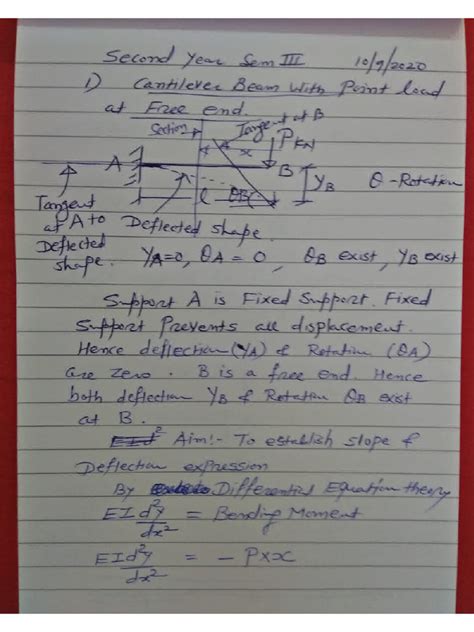 Second Year Sem III 10/9/2020
1) Cantilever Beam with Point load
at Free end.
Section Tangent at B
x P kN
A B
l θB yB θ - Rotation
Tangent
at A to Deflected shape.
Deflected
shape. yA=0, θA = 0, θB exist, yB exist
Support A is Fixed Support. Fixed
Support Prevents all displacement.
Hence deflection (yA) & Rotation (θA)
are zero. B is a free end. Hence
both deflection yB & Rotation θB exist
at B.
Aim:- To establish slope &
Deflection expression
By Differential Equation theory
EI d²y/dx² = Bending Moment
EI d²y/dx² = - P×x